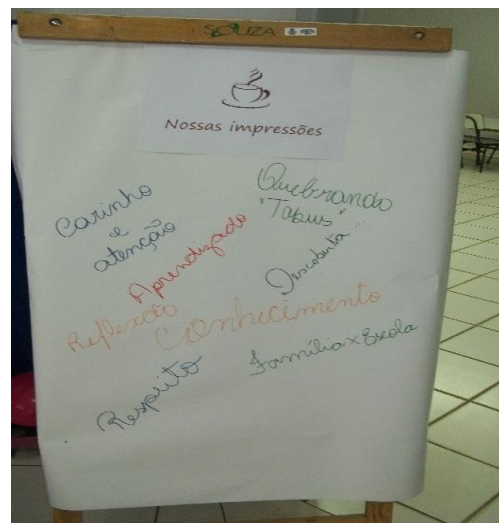 SOUZA
Nossas impressões
Carinho
e
atenção
Quebrando
"Tabus"
Aprendizado
Descoberta...
Reflexão
Conhecimento
Respeito
Família x Escola